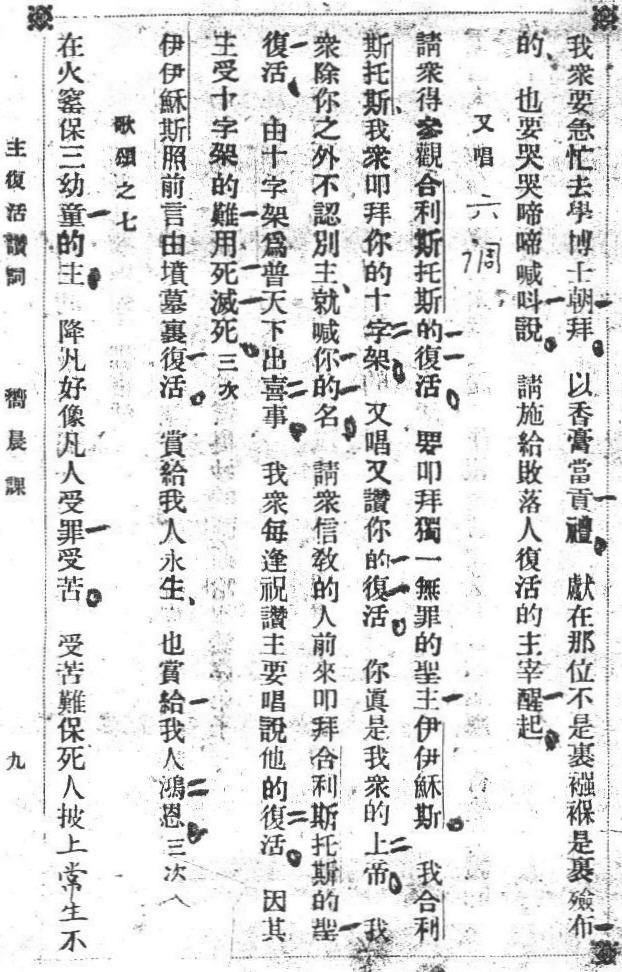 我衆要急忙去學博士朝拜　以香膏當貢禮　獻在那位不是裹襁褓是裹殮布
的、也要哭哭啼啼喊呌說　請施給敗落人復活的主宰醒起
又唱　六調
請衆得參觀合利斯托斯的復活　要叩拜獨一無罪的聖主伊伊穌斯　我合利
斯托斯、我衆叩拜你的十字架　又唱又讚你的復活　你眞是我衆的上帝　我
衆除你之外不認別主、就喊你的名　請衆信敎的人前來叩拜合利斯托斯的聖
復活　由十字架爲普天下出喜事　我衆每逢祝讚主要唱說他的復活　因其
主受十字架的難用死滅死　三次
伊伊穌斯照前言由墳墓裏復活　賞給我人永生、也賞給我人鴻恩　三次
歌頌之七
在火窰保三幼童的主　降凡好像凡人受罪受苦　受苦難保死人披上常生不
主復活讚詞　嚮晨課　九